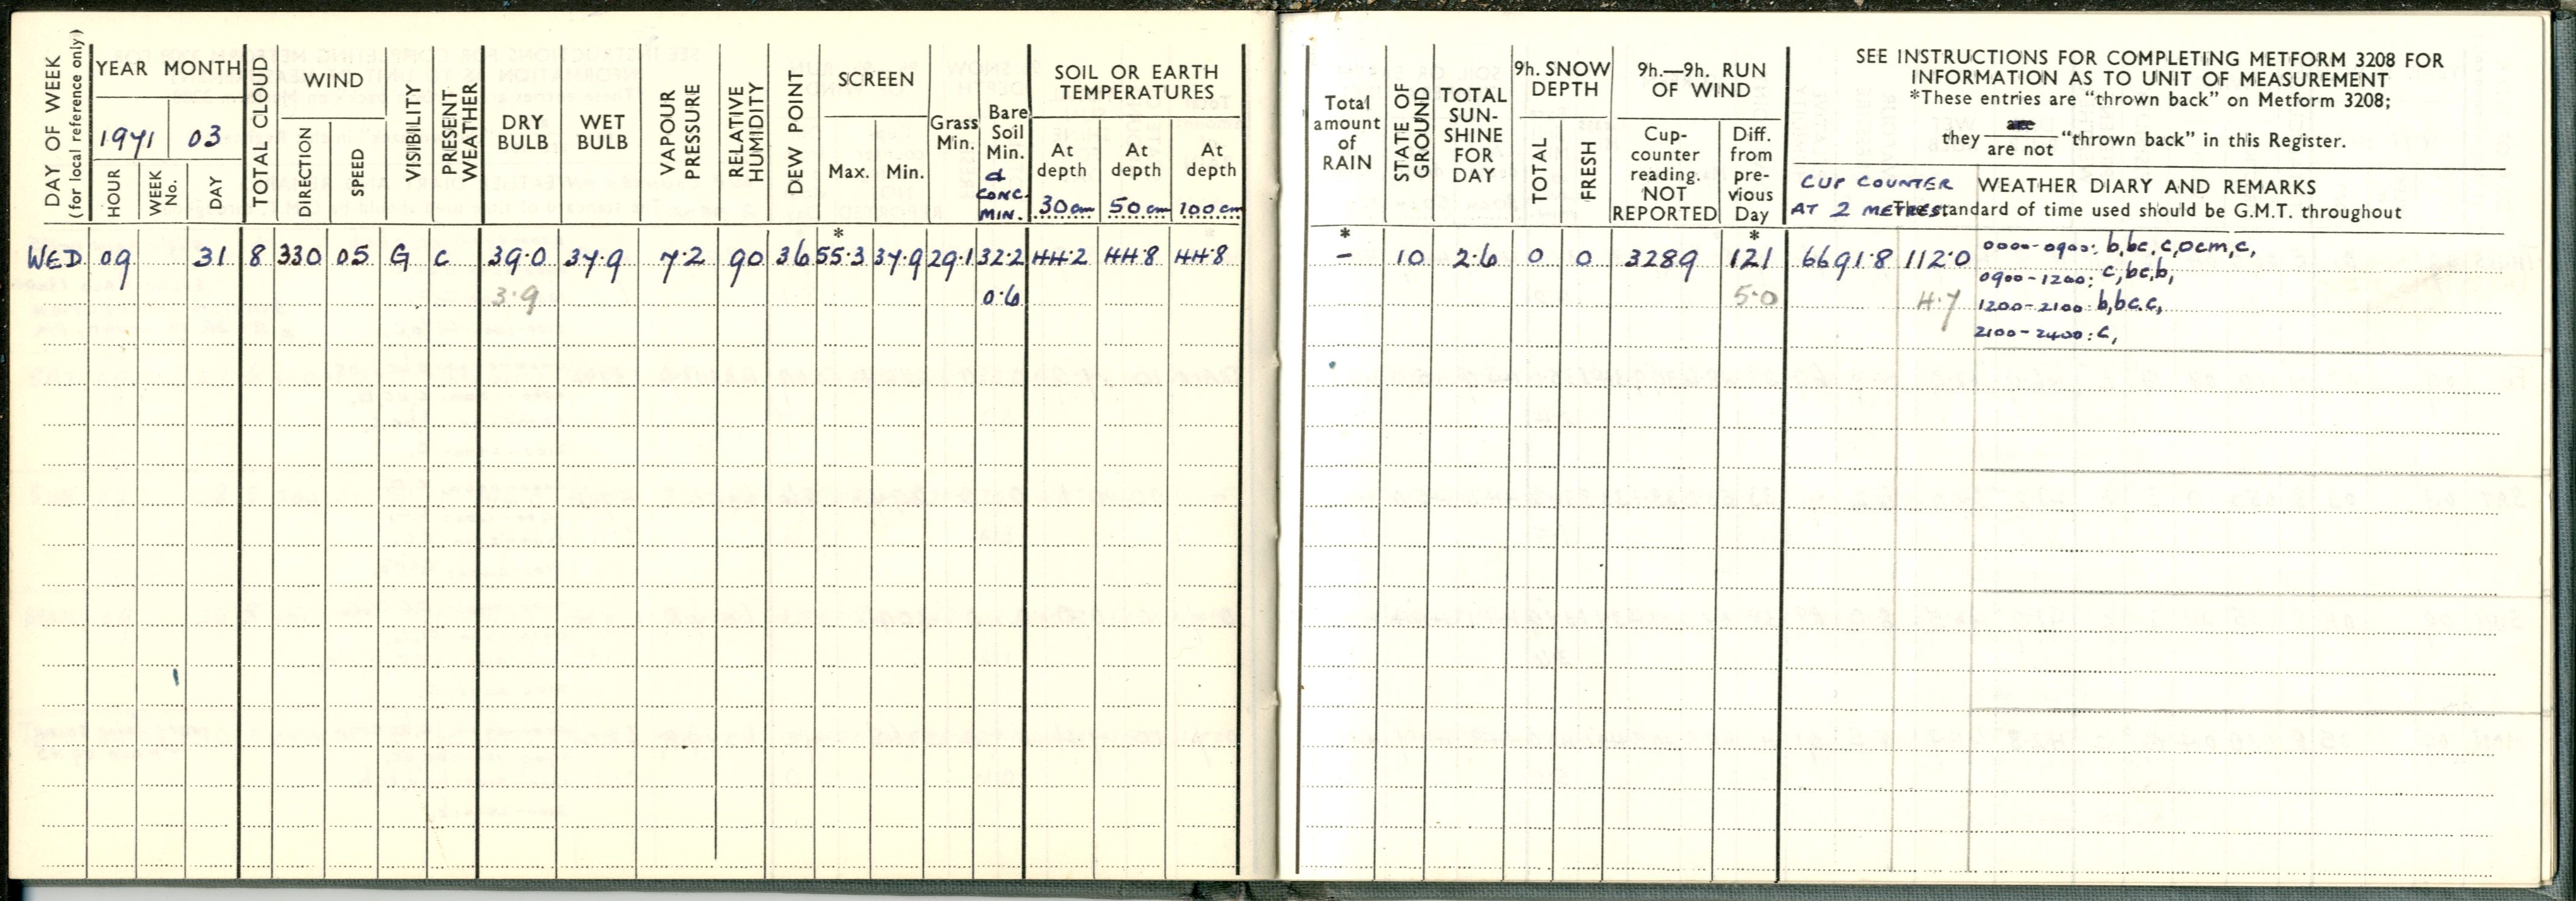 DAY OF WEEK
(for local reference only)
YEAR MONTH
1971 03
HOUR
WEEK No.
DAY
TOTAL CLOUD
WIND
DIRECTION
SPEED
VISIBILITY
PRESENT WEATHER
DRY BULB
WET BULB
VAPOUR PRESSURE
RELATIVE HUMIDITY
DEW POINT
SCREEN
Max. Min.
Grass Min.
Bare Soil Min.
& CONC. MIN.
SOIL OR EARTH
TEMPERATURES
At depth 30cm
At depth 50cm
At depth 100cm
WED 09 31 8 330 05 G C 39.0 37.9 7.2 90 36 * 55.3 37.9 29.1 32.2 44.2 44.8 44.8
3.9 0.6
Total amount of RAIN
STATE OF GROUND
TOTAL SUN-SHINE FOR DAY
9h. SNOW DEPTH
TOTAL
FRESH
9h.—9h. RUN OF WIND
Cup-counter reading. NOT REPORTED
Diff. from pre-vious Day
SEE INSTRUCTIONS FOR COMPLETING METFORM 3208 FOR
INFORMATION AS TO UNIT OF MEASUREMENT
*These entries are "thrown back" on Metform 3208;
they are / are not "thrown back" in this Register.
CUP COUNTER
AT 2 METRES.
WEATHER DIARY AND REMARKS
The standard of time used should be G.M.T. throughout
* – 10 2.6 0 0 3289 * 121 6691.8 112.0
5.0 4.7
0000-0900: b,bc,c,ocm,c,
0900-1200: c,bc,b,
1200-2100: b,bc.c,
2100-2400: c,